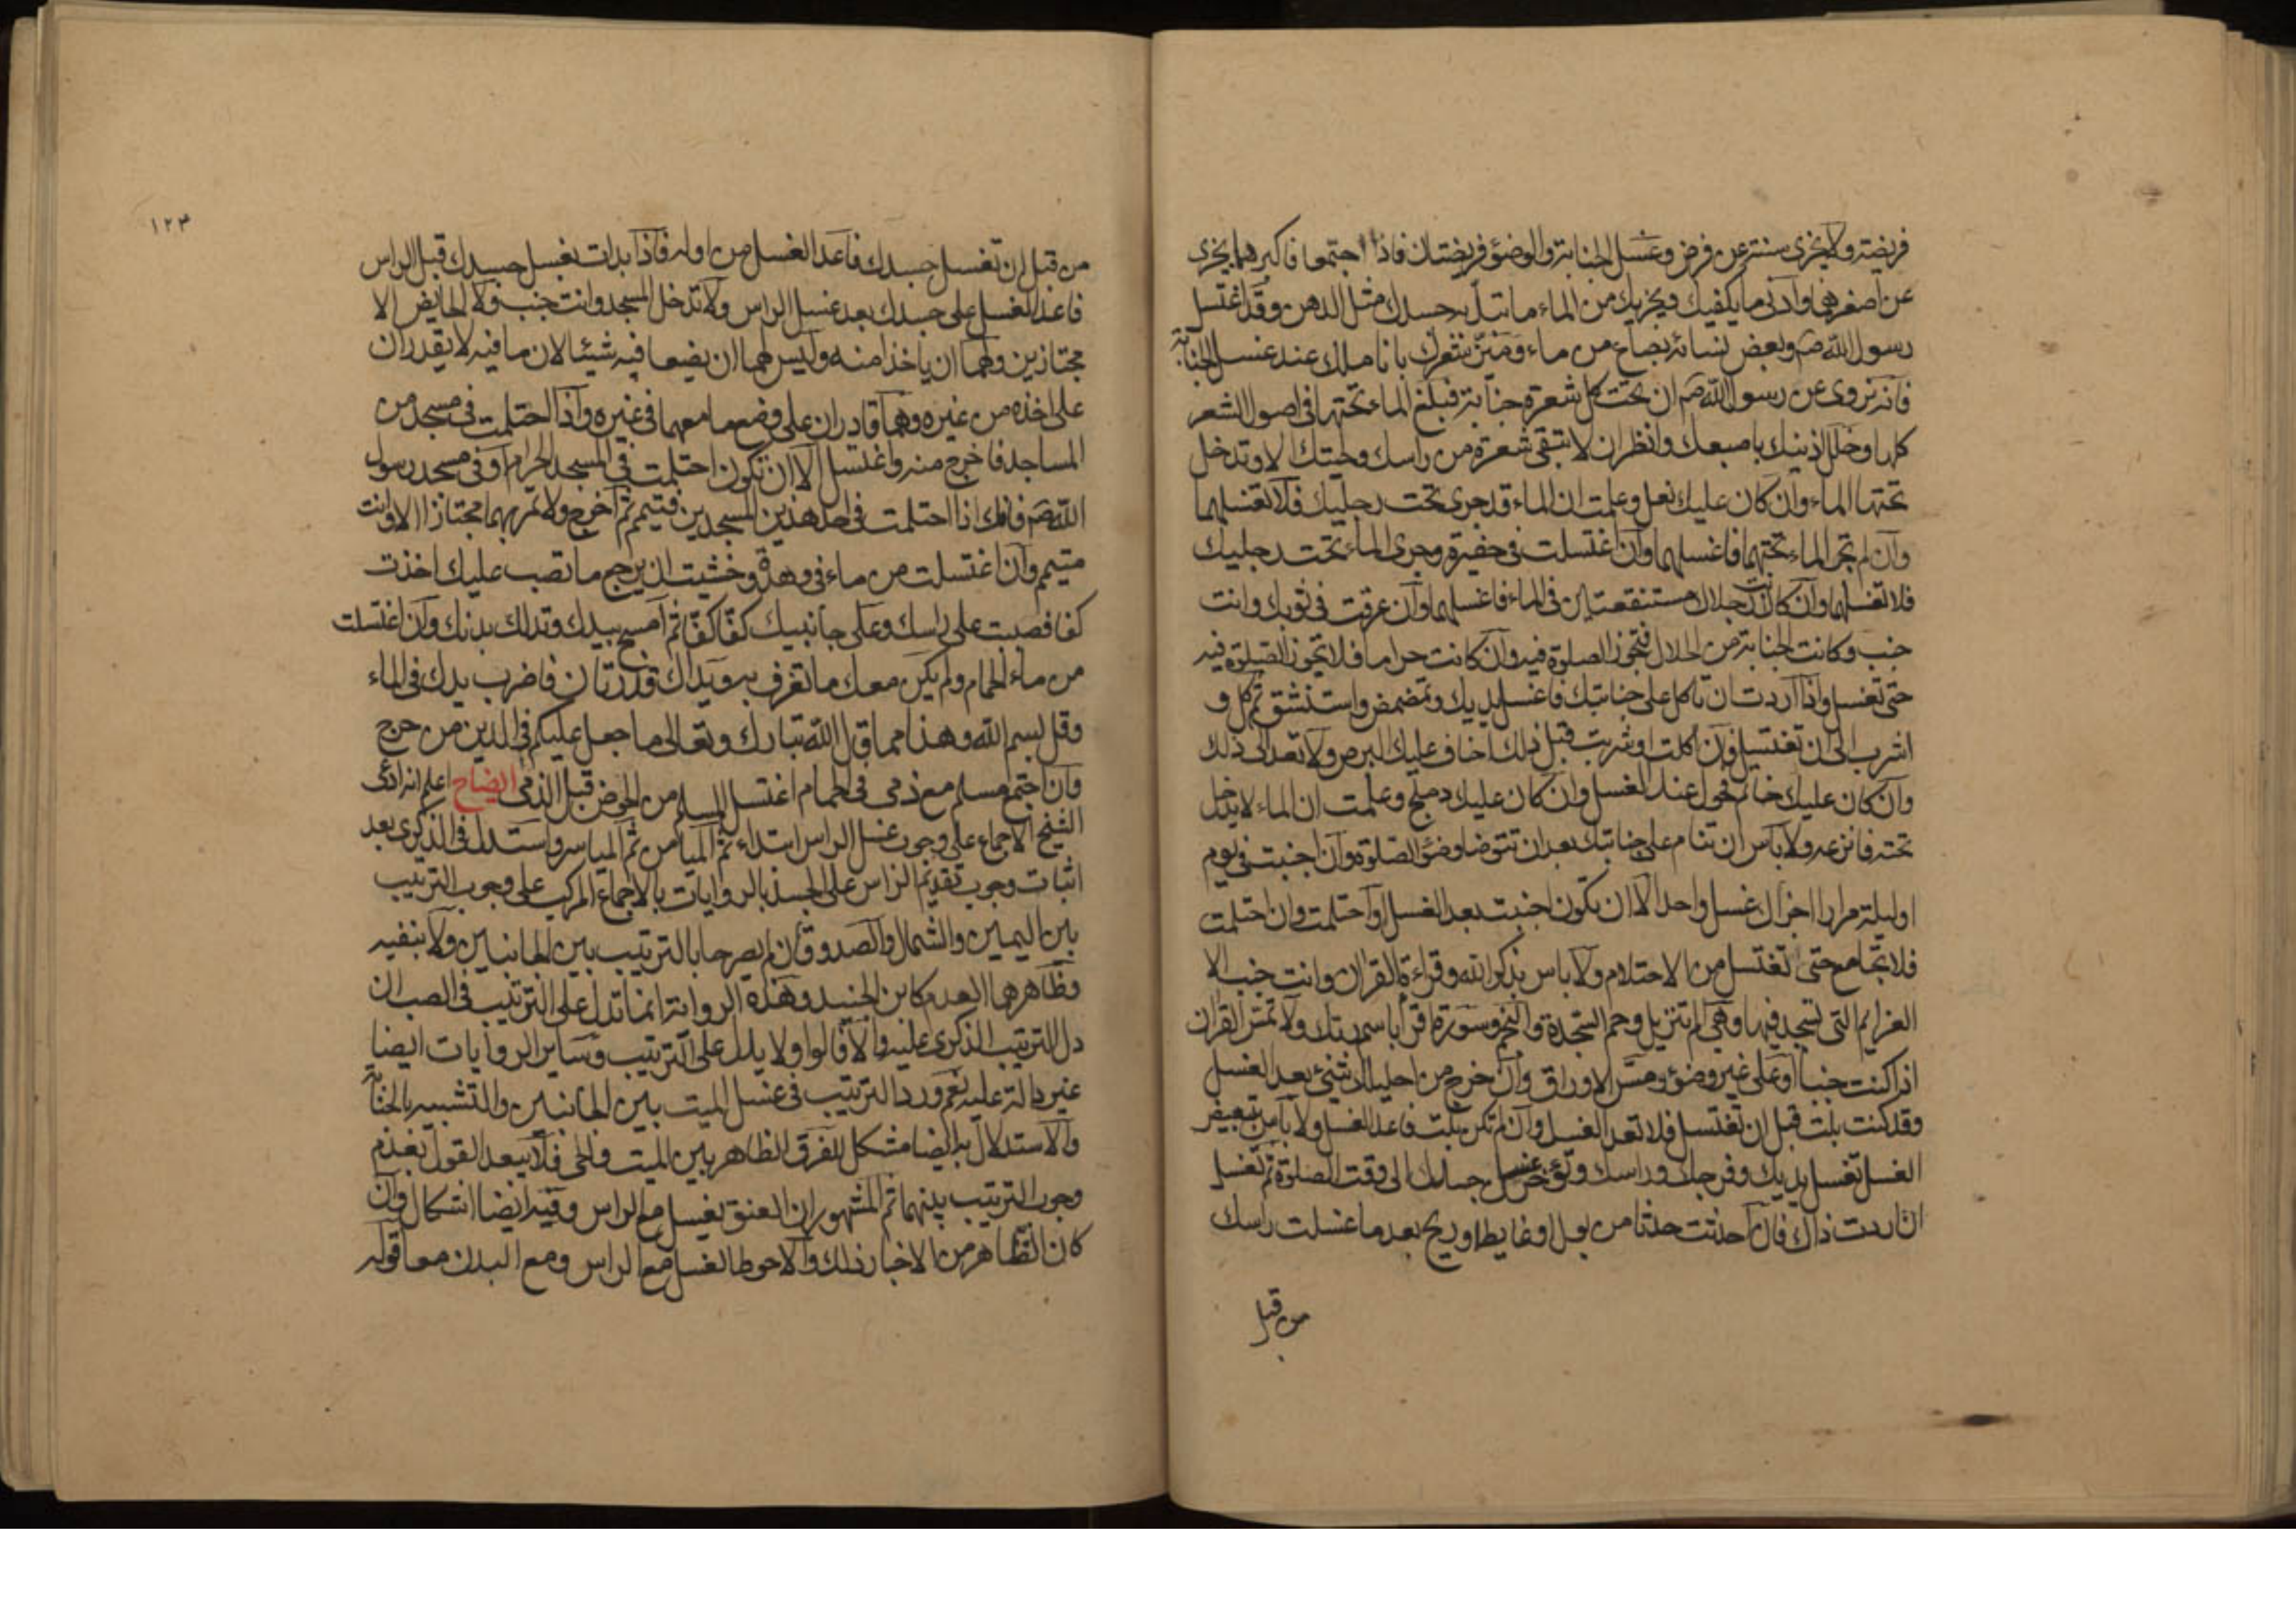 فريضة ولا يجزى سنة عن فرض وغسل الجنابة والوضوء فريضتان فاذا اجتمعا فاكبرهما يجزى
عن اصغرهما وادنى ما يكفيك ويجزيك من الماء ما تبلّ به جسدك مثل الدهن وقد اغتسل
رسول الله صم وبعض نسائه بصاع من ماء وميّز شعرك باناملك عند غسل الجنابة
فانه نروى عن رسول الله صم ان تحت كل شعرة جنابة فبلغ الماء تحتها فى اصول الشعر
كلها وخلل اذنيك باصبعك وانظر ان لا تبقى شعرة من راسك ولحيتك الا وتدخل
تحتها الماء وان كان عليك نعل وعلمت ان الماء قد جرى تحت رجليك فلا تغسلهما
وان لم تجر الماء تحتهما فاغسلهما وان اغتسلت فى حفيرة وجرى الماء تحت رجليك
فلا تغسلهما وان كانت رجلاك مستنقعتين فى الماء فاغسلهما وان عرقت فى ثوبك وانت
جنب وكانت الجنابة من الحلال فتجوز الصلوة فيه وان كانت حراما فلا تجوز الصلوة فيه
حتى تغسل واذا اردت ان تاكل على جنابتك فاغسل يديك وتمضمض واستنشق ثم كل و
اشرب الى ان تغتسل فان اكلت او شربت قبل ذلك اخاف عليك البرص ولا تعد الى ذلك
وان كان عليك خاتم فحوله عند الغسل وان كان عليك دملج وعلمت ان الماء لا يدخل
تحته فانزعه ولا باس ان تنام على جنابتك بعد ان تتوضا وضوء الصلوة وان اجنبت فى يوم
او ليلة مرارا اجزاك غسل واحد الا ان تكون اجنبت بعد الغسل او احتلمت وان احتلمت
فلا تجامع حتى تغتسل من الاحتلام ولا باس بذكر الله وقراءة القران وانت جنب الا
العزايم التى تسجد فيها وهى الم تنزيل وحم السجدة والنجم وسورة اقرا باسم ربك ولا تمسّ القران
اذا كنت جنبا او على غير وضوء ومسّ الاوراق وان خرج من احليلك شىء بعد الغسل
وقد كنت بلت قبل ان تغتسل فلا تعد الغسل وان لم تكن بلت فاعد الغسل ولا باس بتبعيض
الغسل تغسل يديك وفرجك وراسك وتؤخر غسل جسدك الى وقت الصلوة ثم تغسل
ان اردت ذاك فان احدثت حدثا من بول او غايط او ريح بعد ما غسلت راسك
من قبل
١٢٣
من قبل ان تغسل جسدك فاعد الغسل من اوله فاذا بدات بغسل جسدك قبل الراس
فاعد الغسل على جسدك بعد غسل الراس ولا تدخل المسجد وانت جنب ولا الحايض الا
مجتازين ولهما ان ياخذا منه وليس لهما ان يضعا فيه شيئا لان ما فيه لا يقدران
على اخذه من غيره وهما قادران على وضع ما معهما فى غيره واذا احتلمت فى مسجد من
المساجد فاخرج منه واغتسل الا ان تكون احتلمت فى المسجد الحرام او فى مسجد رسول
الله صم فانك اذا احتلمت فى احد هذين المسجدين فتيمم ثم اخرج ولا تمر بهما مجتازا الا وانت
متيمم وان اغتسلت من ماء فى وهدة وخشيت ان يرجع ما تصب عليك اخذت
كفا فصببت على راسك وعلى جانبيك كفّا كفّا ثم امسح بيدك وتدلك بدنك وان اغتسلت
من ماء الحمام ولم يكن معك ما تغرف به ويداك قذرتان فاضرب يدك فى الماء
وقل بسم الله وهذا مما قال الله تبارك وتعالى ما جعل عليكم فى الدين من حرج
وان اجتمع مسلم مع ذمى فى الحمام اغتسل المسلم من الحوض قبل الذمى ايضاح اعلم انه ادعى
الشيخ الاجماع على وجوب غسل الراس ابتداء ثم الميامن ثم المياسر واستدل فى الذكرى بعد
اثبات وجوب تقديم الراس على الجسد بالروايات بالاجماع المركب على وجوب الترتيب
بين اليمين والشمال والصدوقان لم يصرحا بالترتيب بين الجانبين ولا بنفيه
وظاهرهما العدم كابن الجنيد وهذه الرواية انما تدل على الترتيب فى الصب ان
دل الترتيب الذكرى عليه والا قالواو لا يدل على الترتيب وساير الروايات ايضا
غير دالة عليه نعم ورد الترتيب فى غسل الميت بين الجانبين والتشبيه بالجنابة
والاستدلال به ايضا مشكل للفرق الظاهر بين الميت والحى فلا يبعد القول بعدم
وجوب الترتيب بينهما ثم المشهور ان العنق يغسل مع الراس وفيه ايضا اشكال وان
كان الظاهر من الاخبار ذلك والاحوط الغسل مع الراس ومع البدن معا قوله